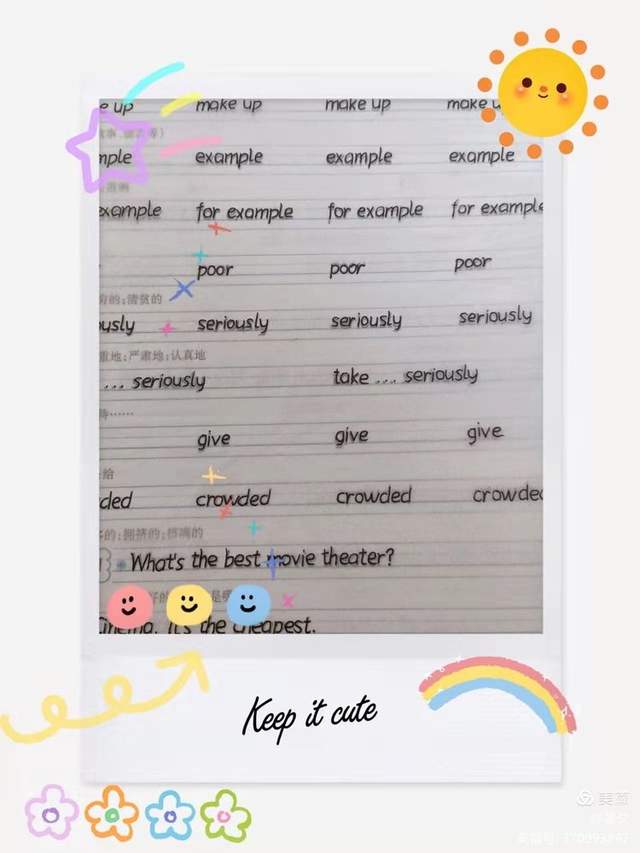 make up make up make up
example example example
example for example for example for example
poor poor poor
清贫的
seriously seriously seriously
重地;严肃地;认真地
... seriously take ... seriously
......
give give give
给
crowded crowded crowded
的;拥挤的;
What's the best movie theater?
Cinema. It's the cheapest.
Keep it cute